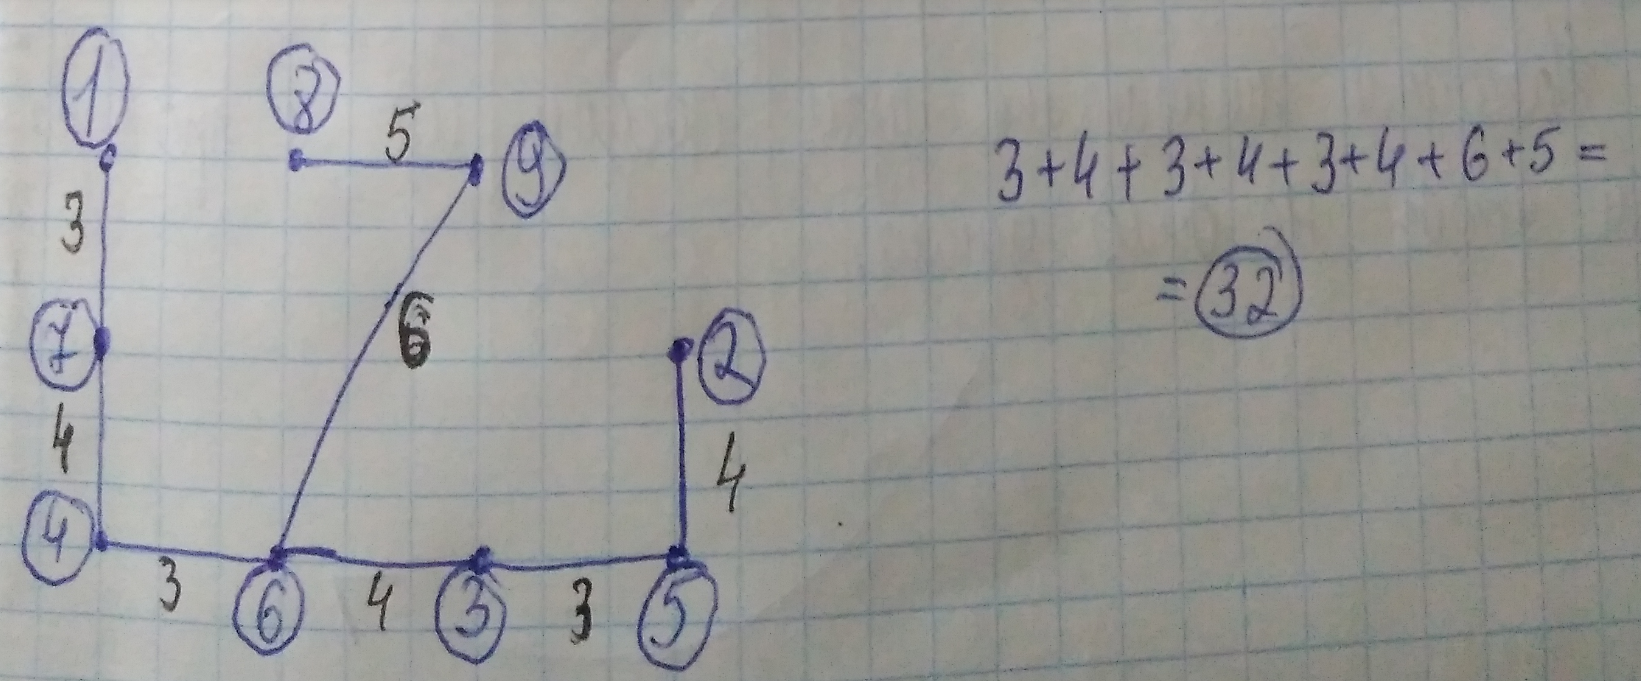 1
8
5
9
3
6
7
2
4
4
4
3
6
4
3
3
5
3+4+3+4+3+4+6+5=
=32